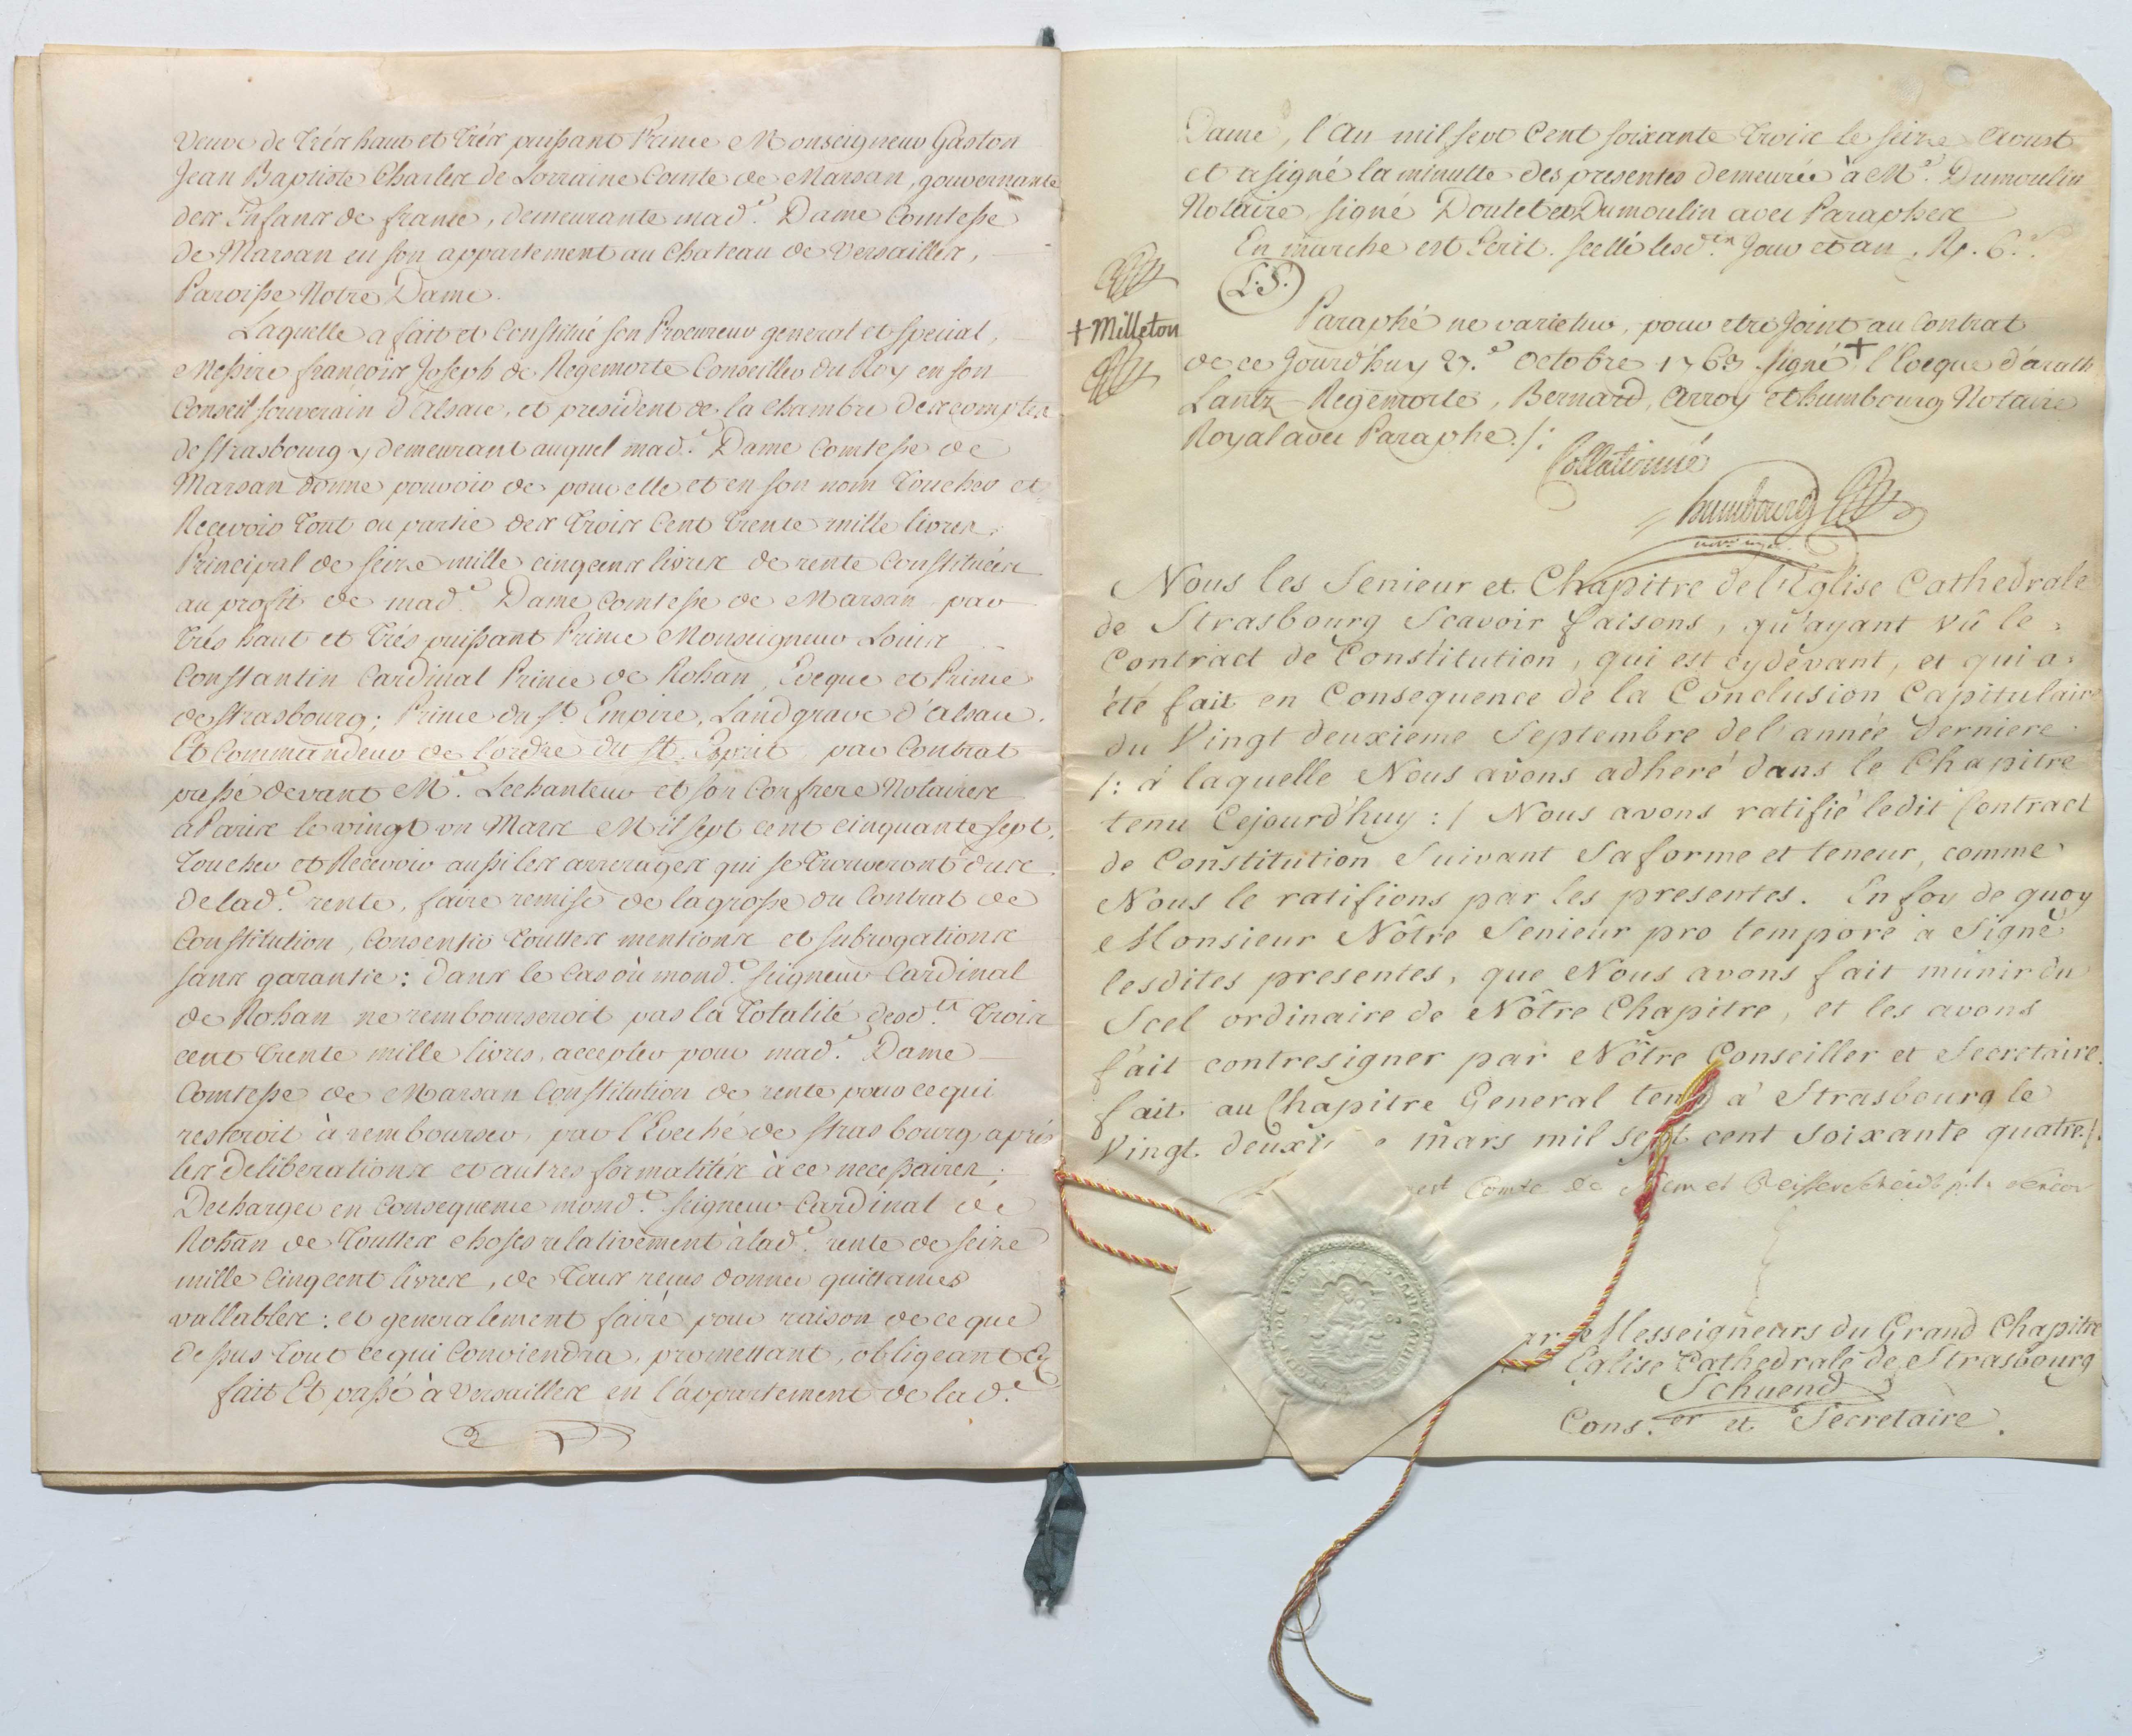 Veuve de Très haut et très puissant Prince Monseigneur Gaston
Jean Baptiste Charles de Lorraine Comte de Marsan, gouvernante
des Enfans de france, demeurante mad.e Dame Comtesse
de Marsan en son appartement au Chateau de Versailles,
Paroisse Notre Dame.
Laquelle a fait et Constitué son Procureur general et special,
Messire françois Joseph de Regemorte Conseiller du Roy en son
Conseil souverain d'alsace, et president de la Chambre des comptes
de strasbourg y demeurant auquel mad.e Dame Comtesse de
Marsan donne pouvoir de pour elle et en son nom Toucher et
Recevoir Tout ou partie des Trois Cent Trente mille livres,
Principal de seize mille cinq cens livres de rente Constituées
au profit de mad.e Dame Comtesse de Marsan par
très haut et très puissant Prince Monseigneur Louis
Constantin Cardinal Prince de Rohan, Eveque et Prince
de strasbourg; Prince du st. Empire, Landgrave d'alsace.
Et Commandeur de l'ordre du st. Esprit, par Contrat
passé devant Me. Lechanteur et son Confrere Notaires
à Paris le vingt un Mars Mil sept cent cinquante sept,
Toucher et Recevoir aussi les arrerages qui se Trouveront dus
de lad.e rente, faire remise de la grosse du Contrat de
Constitution, Consentir Touttes mentions et subrogations
sans garantie: dans le Cas où mond.e seigneur Cardinal
de Rohan ne rembourseroit pas la Totalité desd.tes Trois
cent trente mille livres, accepter pour mad.e Dame
Comtesse de Marsan Constitution de rente pour ce qui
resteroit à rembourser, par l'Eveché de strasbourg après
les deliberations et autres formalités à ce necessaires;
Decharger en Consequence mond.e seigneur Cardinal de
Rohan de Touttes choses relativement à lad.e rente de seize
mille Cinq cent livres, de Tous reçus donner quittances
vallables: et generalement faire pour raison de ce que
dessus tout ce qui Conviendra, promettant, obligeant &
fait Et passé à Versailles en l'appartement de lad.e
Dame, l'an mil sept Cent soixante trois le seize Aoust
et a signé la minutte des presentes demeurée à Me. Dumoulin
Notaire, signé Doutet et Dumoulin avec Paraphes
En marche est Ecrit. scellé lesd.ts Jour et an. R. 6.s
L.S.
Paraphé ne varietur, pour etre Joint au Contrat
+ Milleton
de ce Jourd'huy 27.e Octobre 1763. signé + l'Eveque d'arath
Lantz Regemorte, Bernard, Arroy et humbourg Notaire
Royal avec Paraphe./:
Collationné
humbourg
Nous les Senieur et Chapitre de l'Eglise Cathedrale
de Strasbourg Scavoir faisons, qu'ayant vû le
Contract de Constitution, qui est cydevant, et qui a
été fait en Consequence de la Conclusion Capitulaire
du Vingt deuxieme Septembre de l'année derniere
/: à laquelle Nous avons adheré dans le Chapitre
tenu Cejourd'huy :/ Nous avons ratifié ledit Contract
de Constitution Suivant Sa forme et teneur, comme
Nous le ratifions par les presentes. En foy de quoy
Monsieur Nôtre Senieur pro tempore a Signé
lesdites presentes, que Nous avons fait munir du
Scel ordinaire de Nôtre Chapitre, et les avons
fait contresigner par Nôtre Conseiller et Secretaire.
fait au Chapitre General tenu à Strasbourg le
Vingt deuxi e mars mil sept cent soixante quatre./.
Comte de Salm et Reifferscheidt p.t. senior
ar Messeigneurs du Grand Chapitre
Eglise Cathedrale de Strasbourg
Schuend
Cons.er et Secretaire.